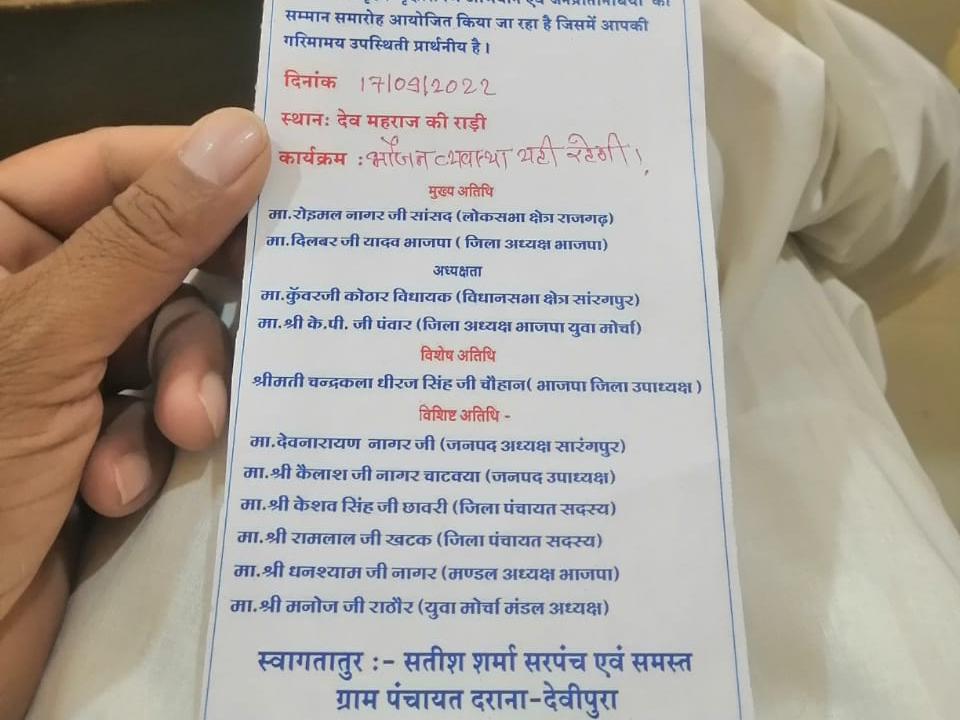 सम्मान समारोह आयोजित किया जा रहा है जिसमें आपकी
गरिमामय उपस्थिती प्रार्थनीय है।
दिनांक 17/09/2022
स्थानः देव महराज की राड़ी
कार्यक्रम : भोजन व्यवस्था यही रहेगी।
मुख्य अतिथि
मा.रोड़मल नागर जी सांसद (लोकसभा क्षेत्र राजगढ़)
मा.दिलबर जी यादव भाजपा ( जिला अध्यक्ष भाजपा)
अध्यक्षता
मा.कुँवरजी कोठार विधायक (विधानसभा क्षेत्र सांरगपुर)
मा.श्री के.पी. जी पंवार (जिला अध्यक्ष भाजपा युवा मोर्चा)
विशेष अतिथि
श्रीमती चन्द्रकला धीरज सिंह जी चौहान( भाजपा जिला उपाध्यक्ष )
विशिष्ट अतिथि -
मा.देवनारायण नागर जी (जनपद अध्यक्ष सारंगपुर)
मा.श्री कैलाश जी नागर चाटक्या (जनपद उपाध्यक्ष)
मा.श्री केशव सिंह जी छावरी (जिला पंचायत सदस्य)
मा.श्री रामलाल जी खटक (जिला पंचायत सदस्य)
मा.श्री धनश्याम जी नागर (मण्डल अध्यक्ष भाजपा)
मा.श्री मनोज जी राठौर (युवा मोर्चा मंडल अध्यक्ष)
स्वागतातुर :- सतीश शर्मा सरपंच एवं समस्त
ग्राम पंचायत दराना-देवीपुरा